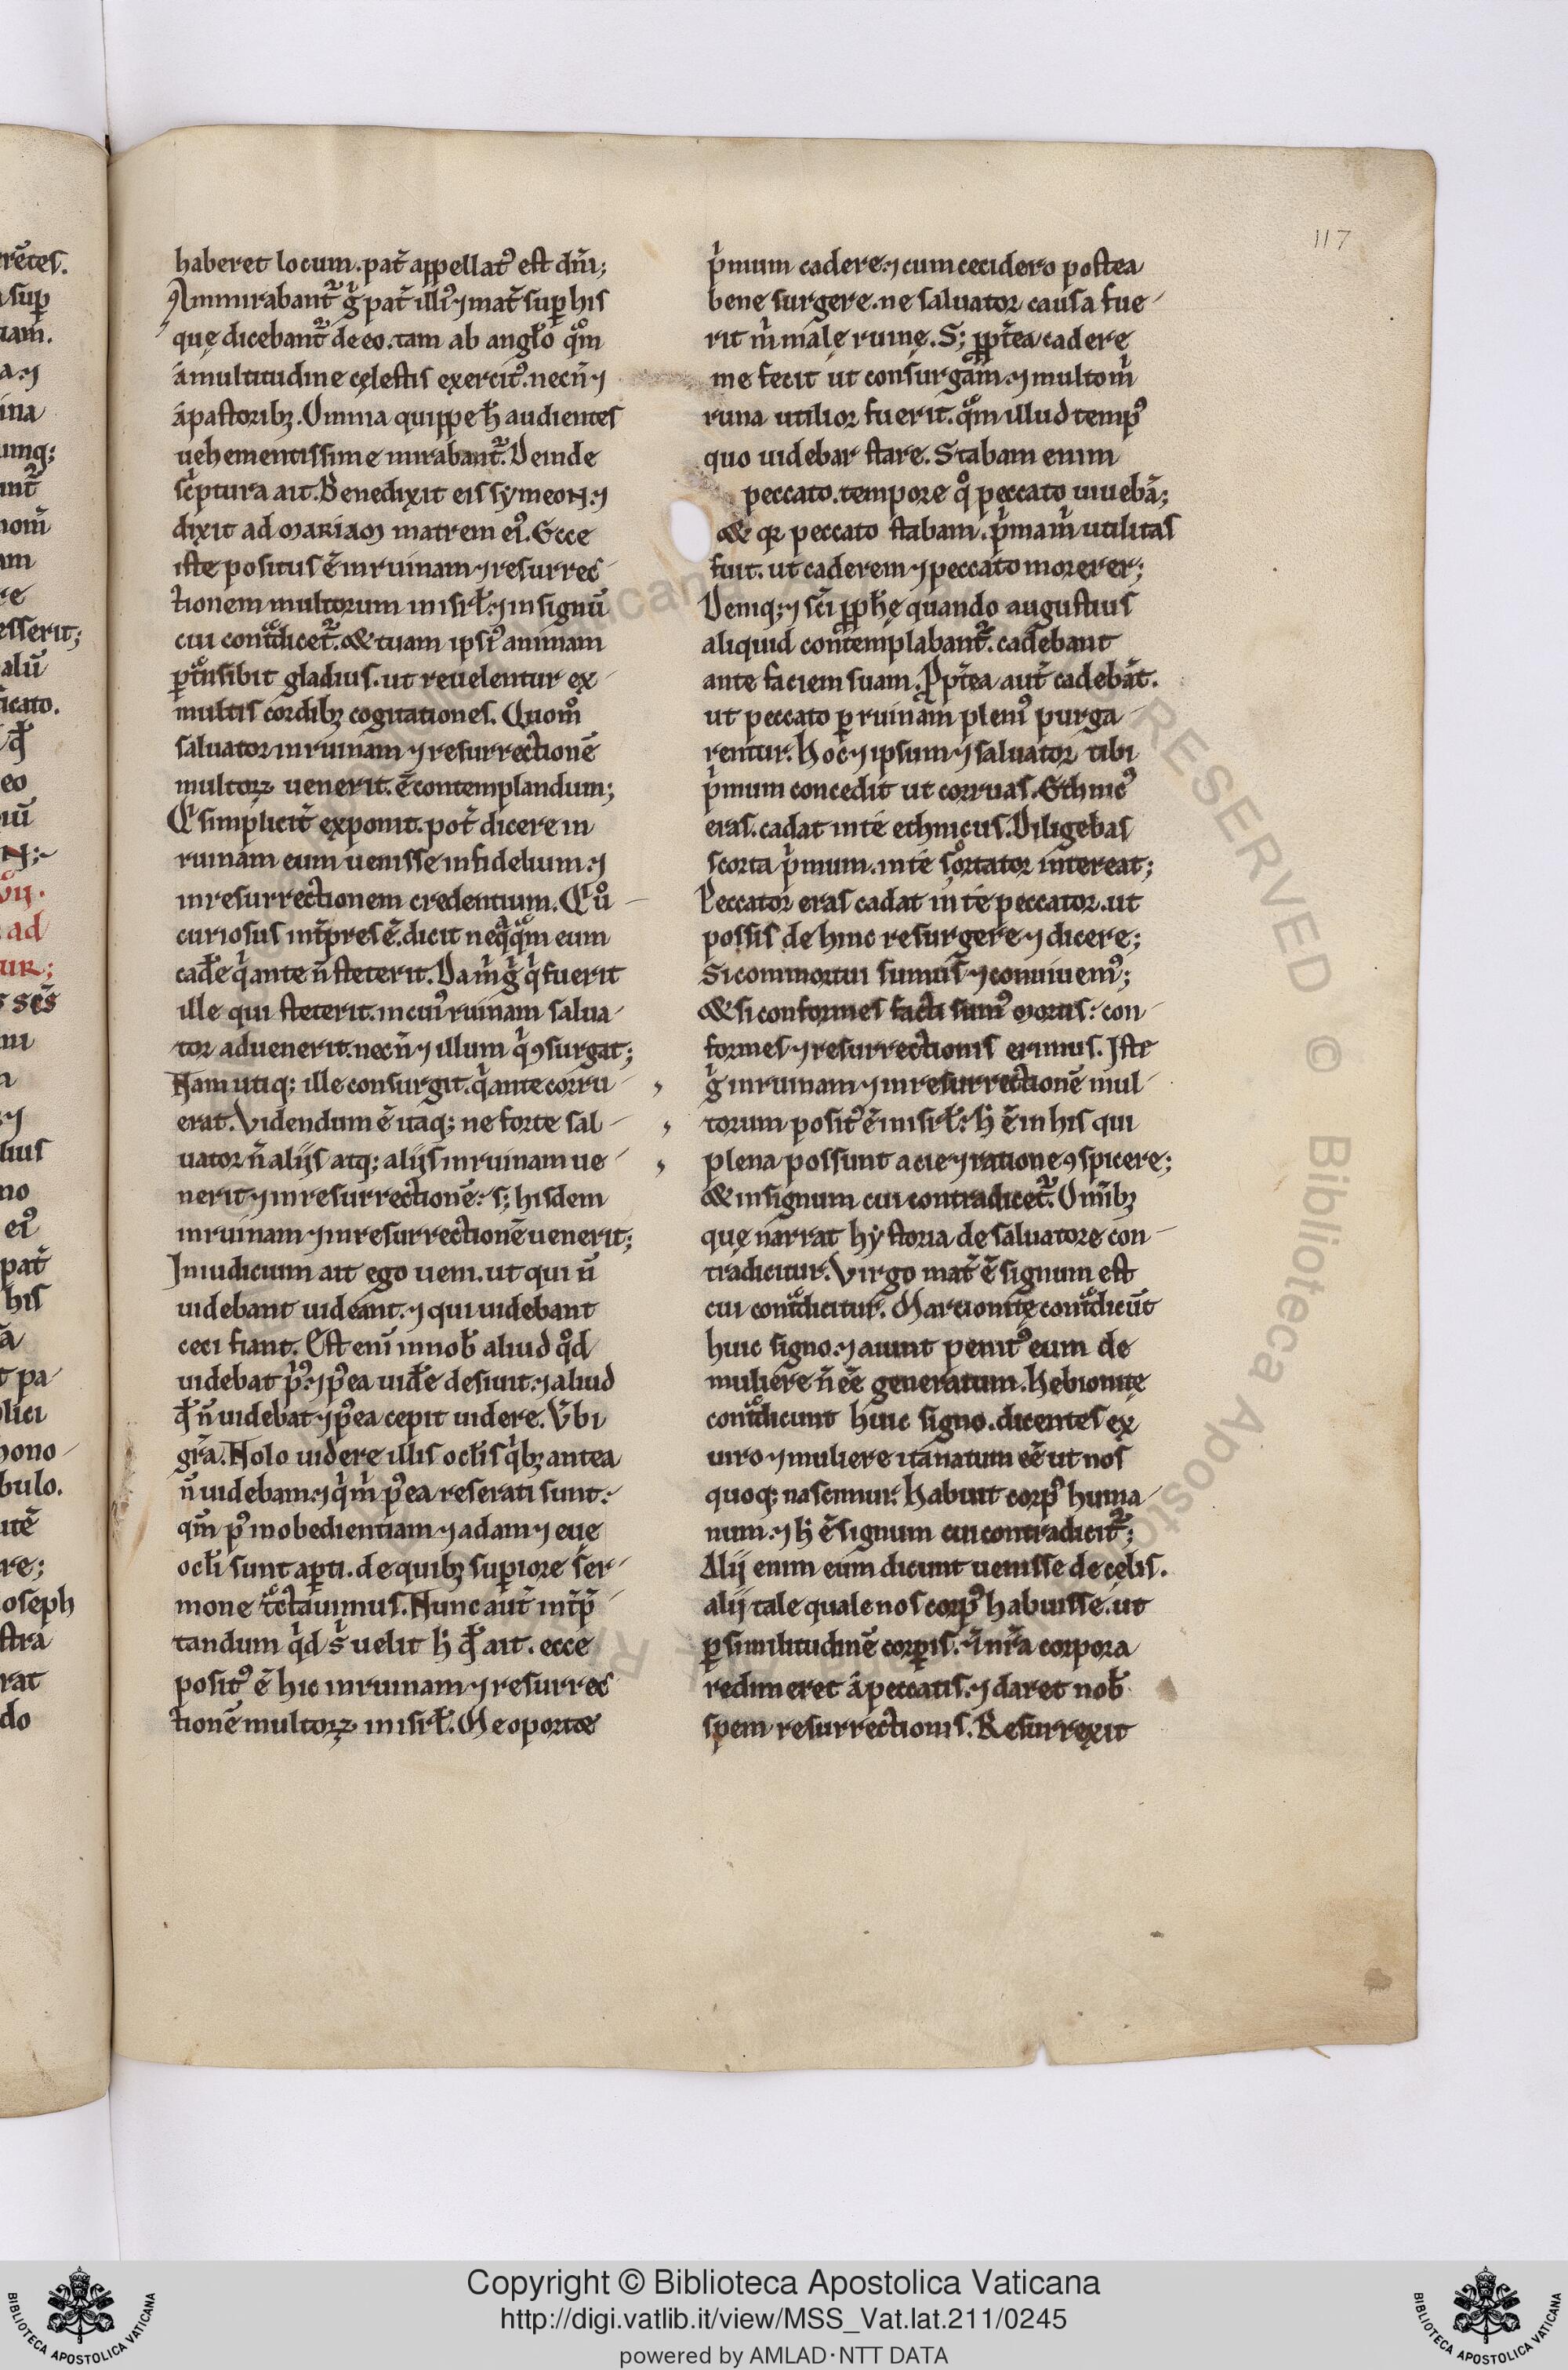 117
haberet locum. pat̄ appellatꝰ est dn̄i;
Ammirabant᷑ g̊ pat̄ illiꝰ ⁊ mat̄ suꝑ his
quę dicebant᷑ de eo. tam ab angło qͦm
a multitudine cęlestis exercitꝰ. necn̄ ⁊
a pastoribꝫ. Omnia quippe h̄ audientes
uehementissime mirabant᷑. Deinde
scͥptura ait. Benedixit eis symeoN. ⁊
dixit ad MARIAM matrem eiꝰ. Ecce
iste positus ē in ruinam ⁊ resurrec-
tionem multorum in isrł. ⁊ in signū
cui contᷓdicet᷑. & tuam ipsiꝰ animam
ꝑtᷓnsibit gladius. ut reuelentur ex
multis cordibꝫ cogitationes. Quomͦ
saluator in ruinam ⁊ resurrectionē
multoꝝ uenerit. ē contemplandum;
Qͥ simplicit̄ exponit. pot̄ dicere in
ruinam eum uenisse infidelium. ⁊
in resurrectionem credentium. Qͥ ů
curiosus int̄pres ē. dicit neqᷓqᷓm eum
cadēe qͥ ante n̄ steterit. Da mͥ g̊ qͥ fuerit
ille qui steterit. in cuiꝰ ruinam salua-
tor aduenerit. necn̄ ⁊ illum qͥ ꝯsurgat;
Nam utiqꝫ ille consurgit. qͥ ante corru-
erat. Videndum ē itaqꝫ ne forte sal-
uator n̄ alijs atqꝫ alijs in ruinam ue-
nerit ⁊ in resurrectionē. sꝫ hisdem
in ruinam ⁊ in resurrectionē uenerit;
In iudicium ait ego ueni. ut qui n̄
uidebant uideant. ⁊ qui uidebant
ceci fiant. Est eni in nob̄ aliud qͦd
uidebat pͥꝰ. ⁊ pꝰea uid̄e desiuit. ⁊ aliud
qd̄ n̄ uidebat ⁊ pꝰea cepit uidere. Vͬbi
gr̄a. Nolo uidere illis oclis qͥbꝫ antea
n̄ uidebam. ⁊ qͥ mͥ pꝰea reserati sunt.
qm̄ pꝰ inobedientiam ⁊ adam ⁊ eue
ocłi sunt aꝑti. de quibꝫ suꝑiore ser-
mone tᷓctauimus. Nunc aut̄ int̄p̄-
tandum qͥd sͥ uelit h̄ qd̄ ait. ecce
positꝰ ē hic in ruinam ⁊ resurrec-
tionē multoꝝ in isrł. Me oportet
pͥmum cadere. ⁊ cum cecidero postea
bene surgere. ne saluator causa fue-
rit mͥ malę ruinę. Sꝫ ꝓpt̄ea cadere
me fecit ut consurgam. ⁊ multo mͥ
ruina utilior fuerit. qᷓm illud tempꝰ
quo uidebar stare. Stabam enim
peccato. tempore qͦ peccato uiuebā;
& qꝛ peccato stabam. pͥma mͥ utilitas
fuit. ut caderem ⁊ peccato morerer;
Deniqꝫ ⁊ sc̄i ꝓph̄ę quando augustius
aliquid contemplabant᷑. cadebant
ante faciem suam. Ꝓpt̄ea aut̄ cadebāt.
ut peccato ꝑ ruinam pleniꝰ purga-
rentur. Hoc ⁊ ipsum ⁊ saluator tibi
pͥmum concedit ut corruas. Ethnicꝰ
eras. cadat in te ethnicus. Diligebas
scorta pͥmum. in te scortator intereat;
Peccator eras cadat in te peccator. ut
possis de hinc resurgere ⁊ dicere;
Si commortui sumus ⁊ conuiuemꝰ;
& si conformes facti sumꝰ mortis: con-
formes ⁊ resurrectionis erimus. Iste
g̊ in ruinam ⁊ in resurrectionē mul-
torum positꝰ ē in isrł. h̄ ē in his qui
plena possunt acie ⁊ ratione ꝯspicere;
& in signum cui contradicet᷑. Om̄ibꝫ
quę narrat hystoria de saluatore con-
tradicitur. Virgo mat̄ ē signum est
cui contᷓdicitur. Marcionitę contᷓdicūt
huic signo. ⁊ aiunt penitꝰ eum de
muliere n̄ ēe generatum. Hebionitę
contᷓdicunt huic signo. dicentes ex
uiro ⁊ muliere ita natum ēe ut nos
quoqꝫ nascimur. Habuit corpꝰ huma-
num. ⁊ h̄ ē signum cui contradicit᷑;
Alij enim eum dicunt uenisse de cęlis.
alij tale quale nos corpꝰ habuisse. ut
ꝑ similitudinē corꝑis. ⁊ nr̄a corpora
redimeret a peccatis. ⁊ daret nob̄
spem resurrectionis. Resurrexit
Copyright © Biblioteca Apostolica Vaticana
http://digi.vatlib.it/view/MSS_Vat.lat.211/0245
powered by AMLAD·NTT DATA
BIBLIOTECA APOSTOLICA VATICANA
BIBLIOTECA APOSTOLICA VATICANA